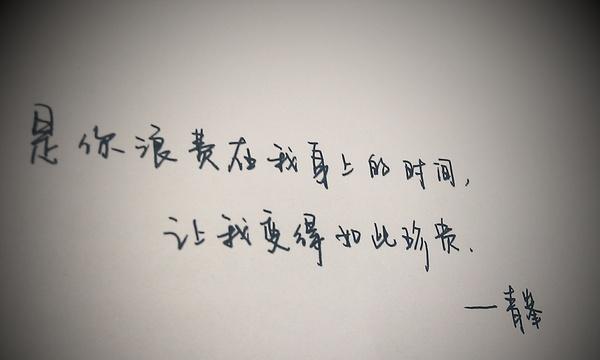 是你浪费在我身上的时间,
让我变得如此珍贵.
—青峯